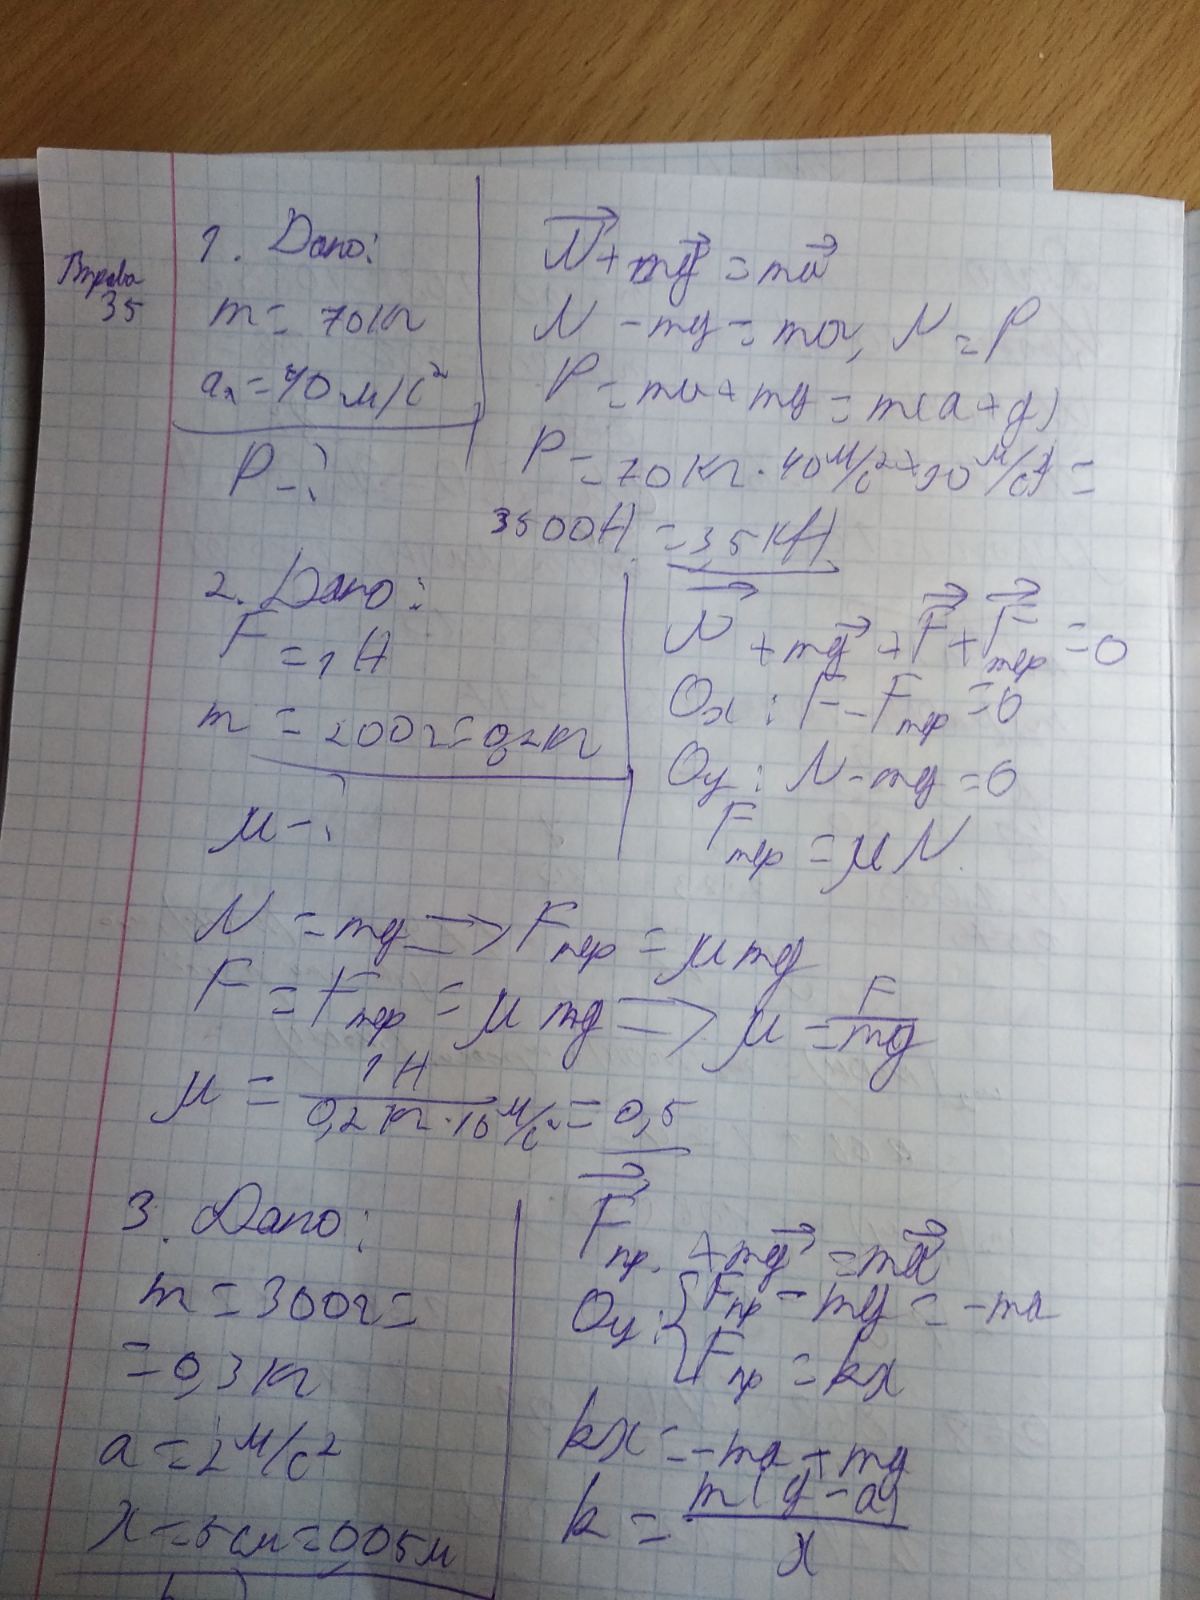 Вправа
35
1. Дано:
m = 70 кг
aₓ = 40 м/с²
P - ?
N + mg = ma
N - mg = ma, N = P
P = ma + mg = m(a + g)
P = 70 кг · 40 м/с² + 10 м/с²) =
3500 Н = 3,5 кН
2. Дано:
F = 1 Н
m = 200 г = 0,2 кг
μ - ?
N + mg + F + Fтер = 0
Ox: F - Fтер = 0
Oy: N - mg = 0
Fтер = μN
N = mg => Fтер = μmg
F = Fтер = μmg => μ = F/mg
μ = 1 Н / 0,2 кг · 10 м/с² = 0,5
3. Дано:
m = 300 г =
= 0,3 кг
a = 2 м/с²
x = 5 см = 0,05 м
Fпр. + mg = ma
Oy: { Fпр - mg = -ma
Fпр = kx
kx = -ma + mg
k = m(g - a) / x